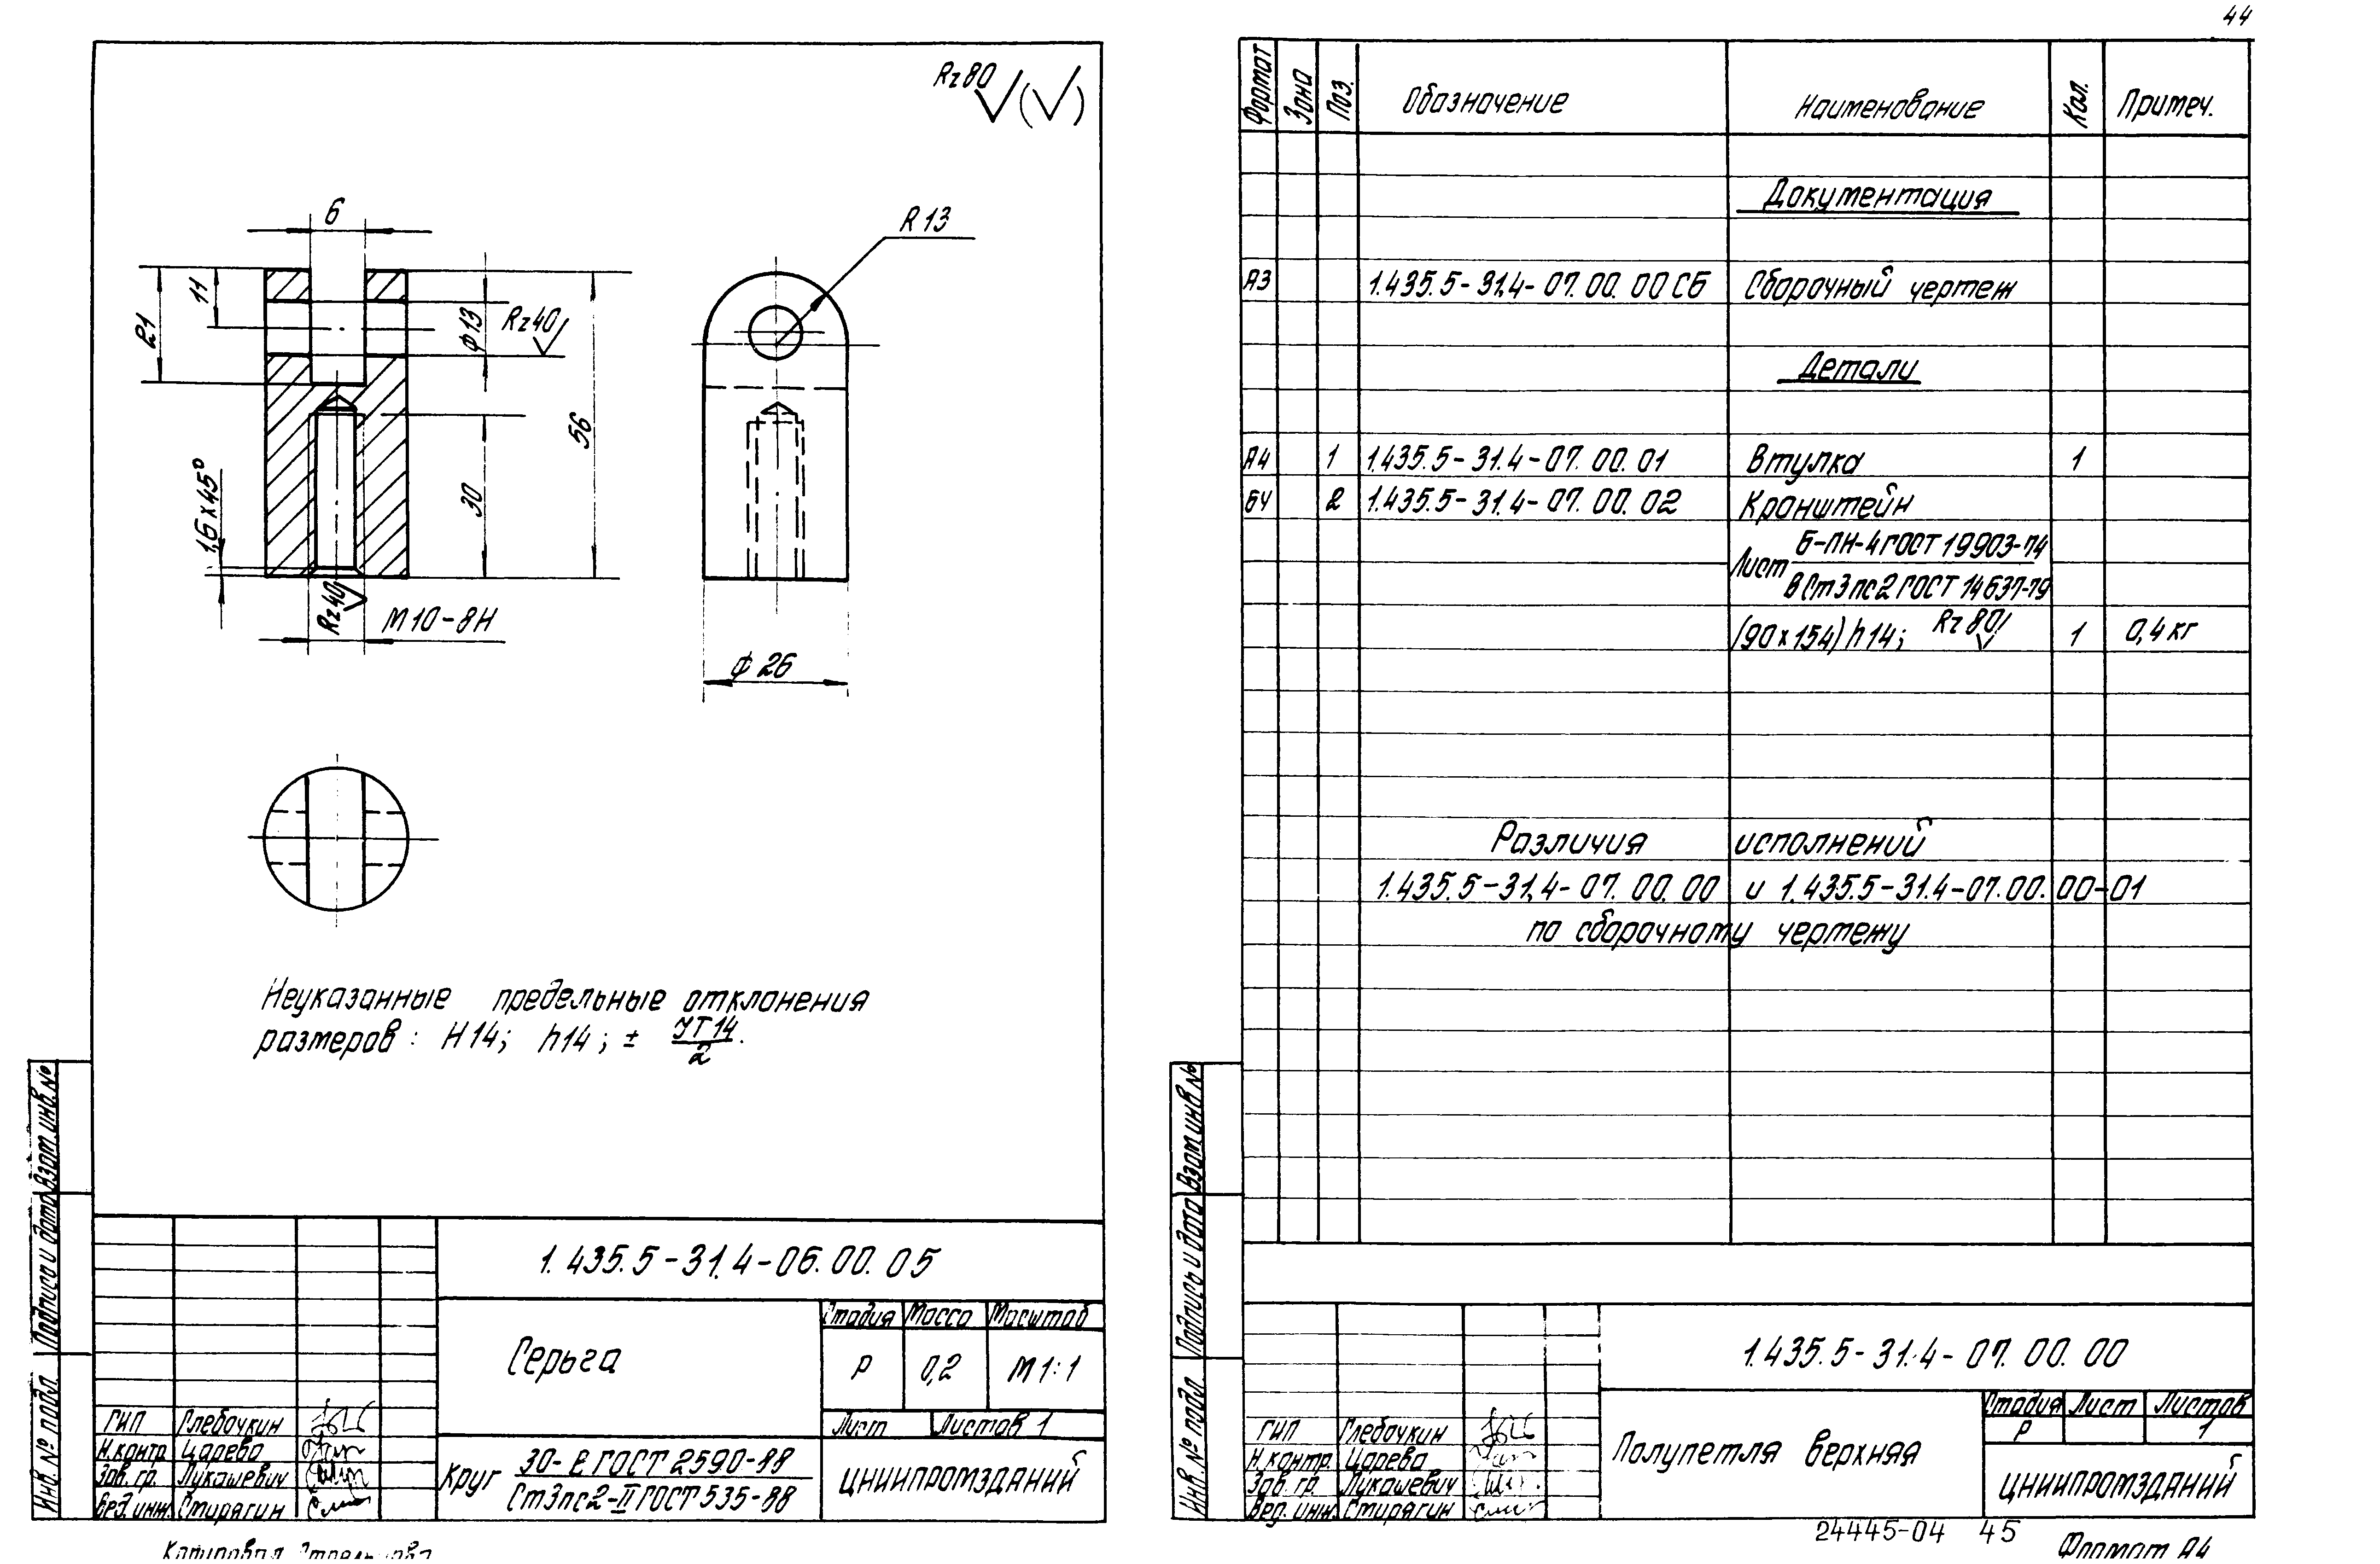 44
Rz80
6
R13
11
21
ф13
Rz40
56
30
1,6×45°
Rz40
М10-8Н
ф 26
Неуказанные предельные отклонения
размеров: Н14; h14; ± JT14/2.
Взам. инв. №
Подпись и дата
Инв. № подл.
1.435.5-31.4-06.00.05
Серьга
Стадия Масса Масштаб
Р 0,2 М 1:1
Лист Листов 1
ГИП Глебочкин
Н.контр. Царева
Зав. гр. Лукашевич
Вед. инж. Стирягин
Круг 30-В ГОСТ 2590-88
Ст3пс2-II ГОСТ 535-88
ЦНИИПРОМЗДАНИЙ
Копировал
Формат Зона Поз. Обозначение Наименование Кол. Примеч.
Документация
А3 1.435.5-31.4-07.00.00СБ Сборочный чертеж
Детали
А4 1 1.435.5-31.4-07.00.01 Втулка 1
БЧ 2 1.435.5-31.4-07.00.02 Кронштейн
Лист Б-ПН-4 ГОСТ 19903-74
ВСт3пс2 ГОСТ 14637-79
(90×154) h14; Rz80 1 0,4 кг
Различия исполнений
1.435.5-31.4-07.00.00 и 1.435.5-31.4-07.00.00-01
по сборочному чертежу
Взам. инв. №
Подпись и дата
Инв. № подл.
1.435.5-31.4-07.00.00
ГИП Глебочкин
Н.контр. Царева
Зав. гр. Лукашевич
Вед. инж. Стирягин
Полупетля верхняя
Стадия Лист Листов
Р 1
ЦНИИПРОМЗДАНИЙ
24445-04 45
Формат А4